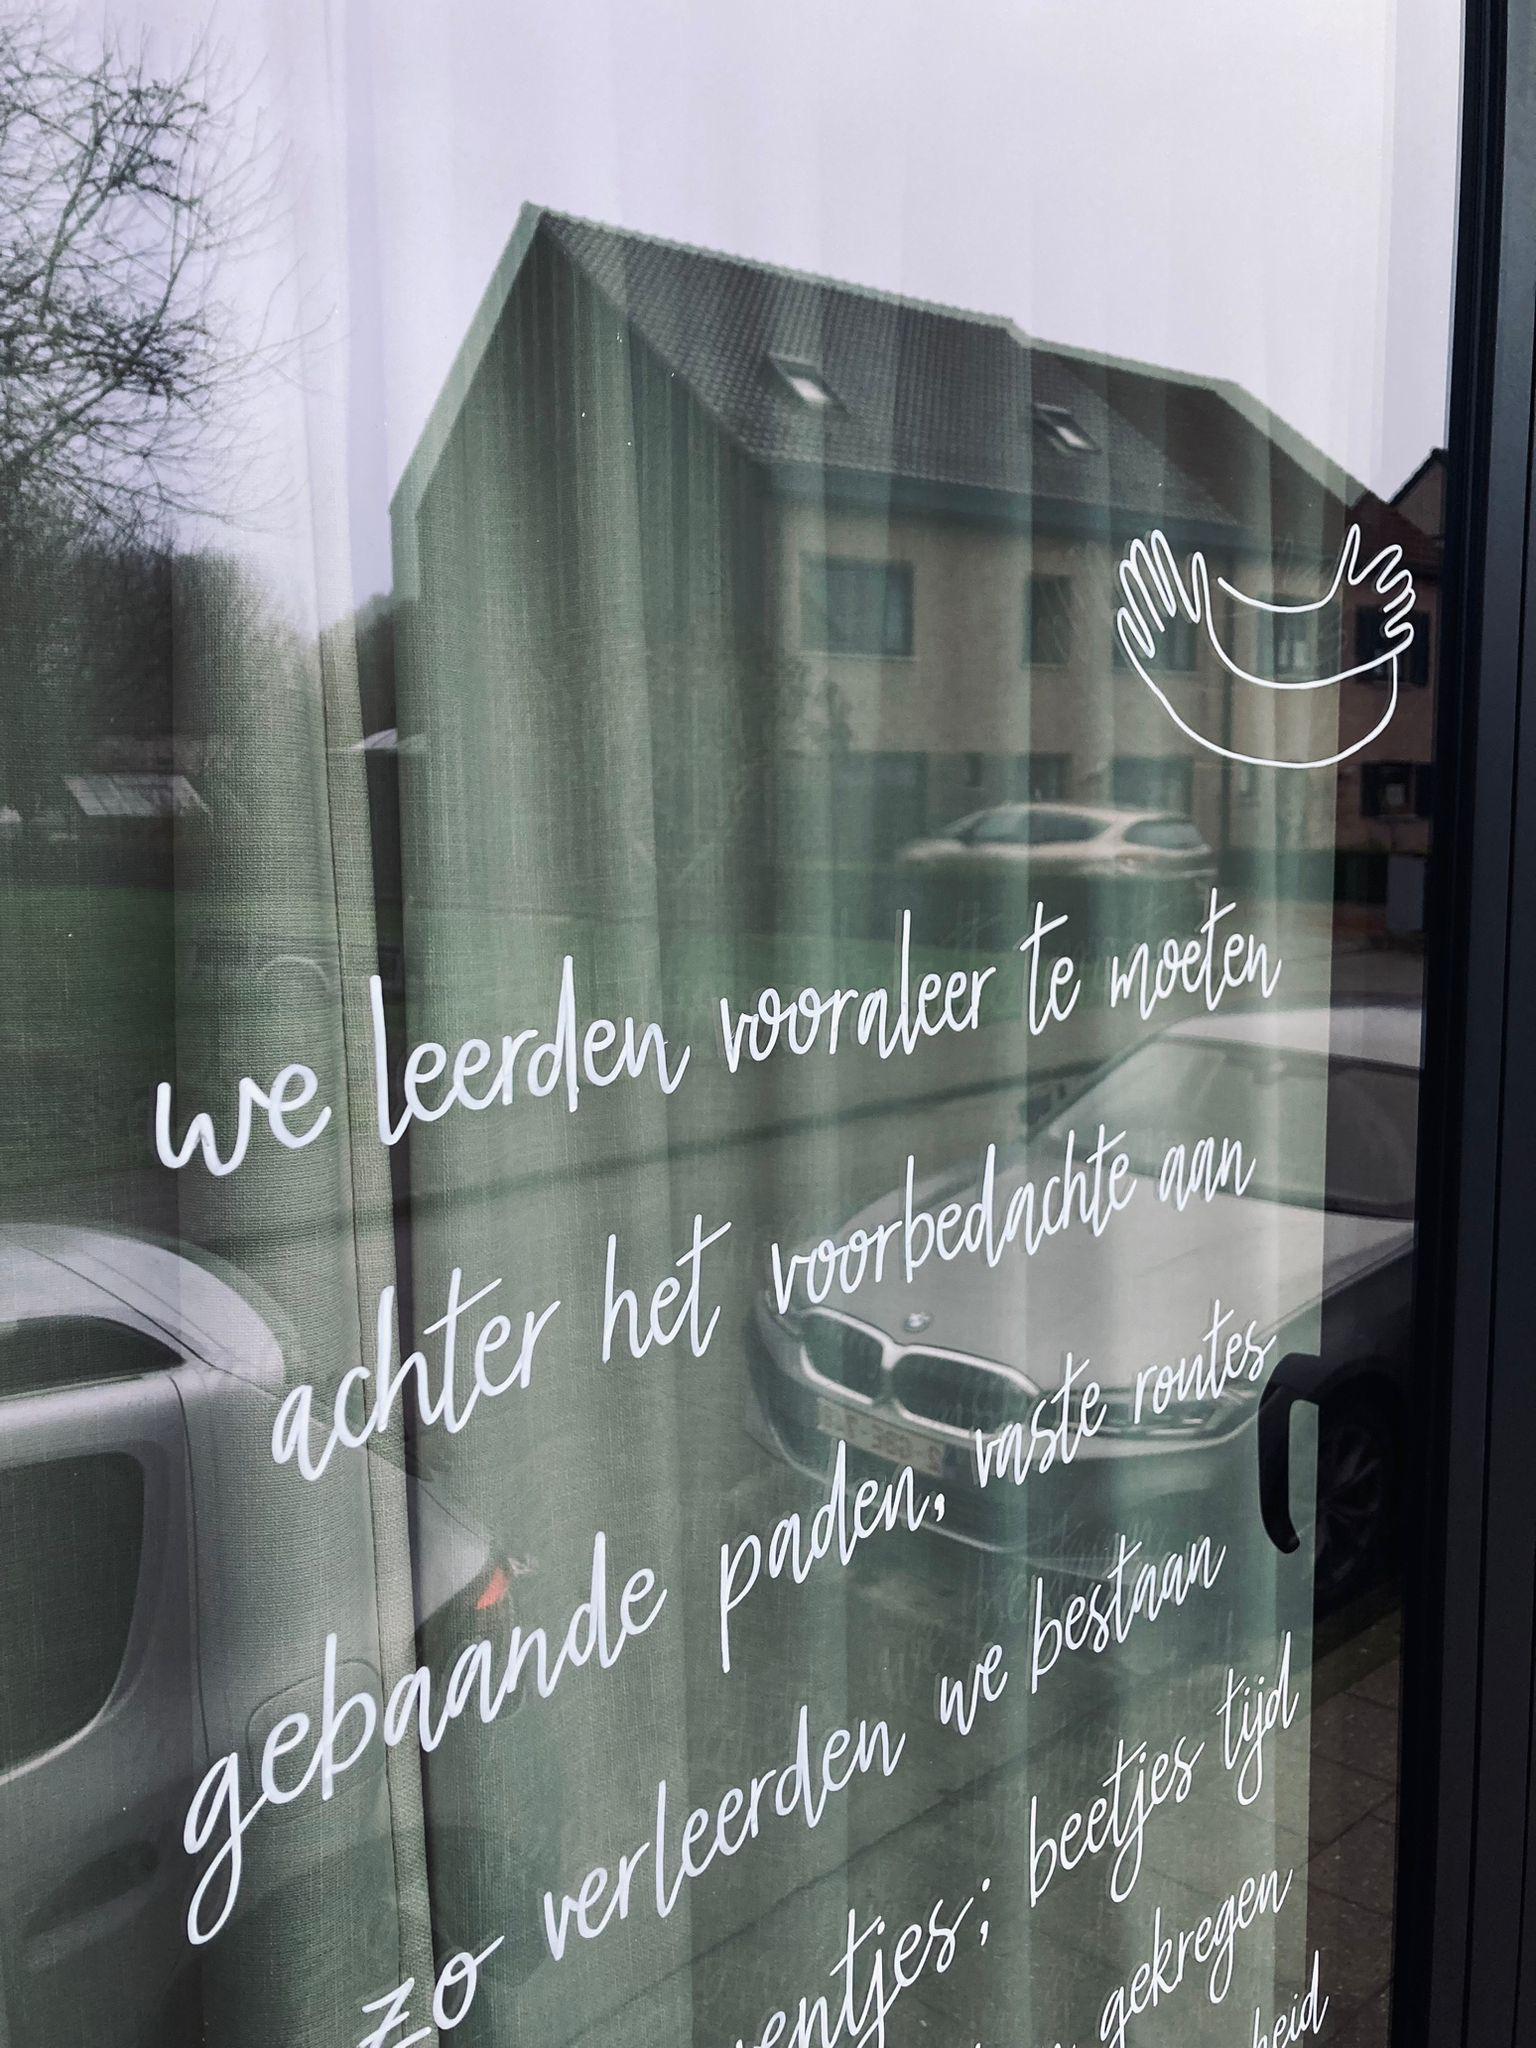 we leerden vooraleer te moeten
achter het voorbedachte aan
gebaande paden, vaste routes
zo verleerden we bestaan
beetjes tijd
gekregen